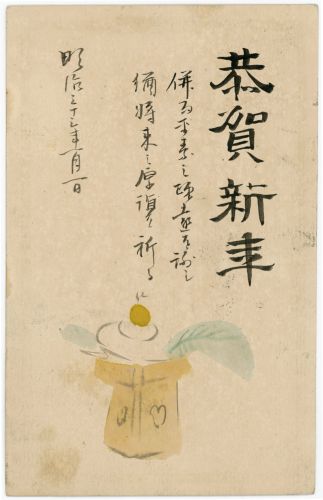 恭賀新年
併而平素之疎遠を謝し
猶将来之厚誼を祈る
明治三十七年一月一日